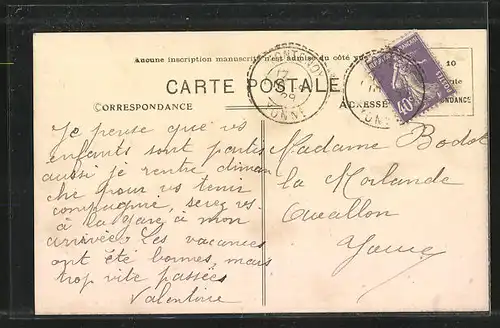 Aucune inscription manuscrite n'est admise du côté
CARTE POSTALE
CORRESPONDANCE
ADRESSE
10
YONNE
29
40c
Je pense que vs
enfants sont partis
aussi je rentre diman
che pour vs tenir
compagnie, serez vs.
à la gare à mon
arrivée. Les vacances
ont été bonnes, mais
trop vite passées
Valentine
Madame Bodot
la Morlande
Avallon
Yonne